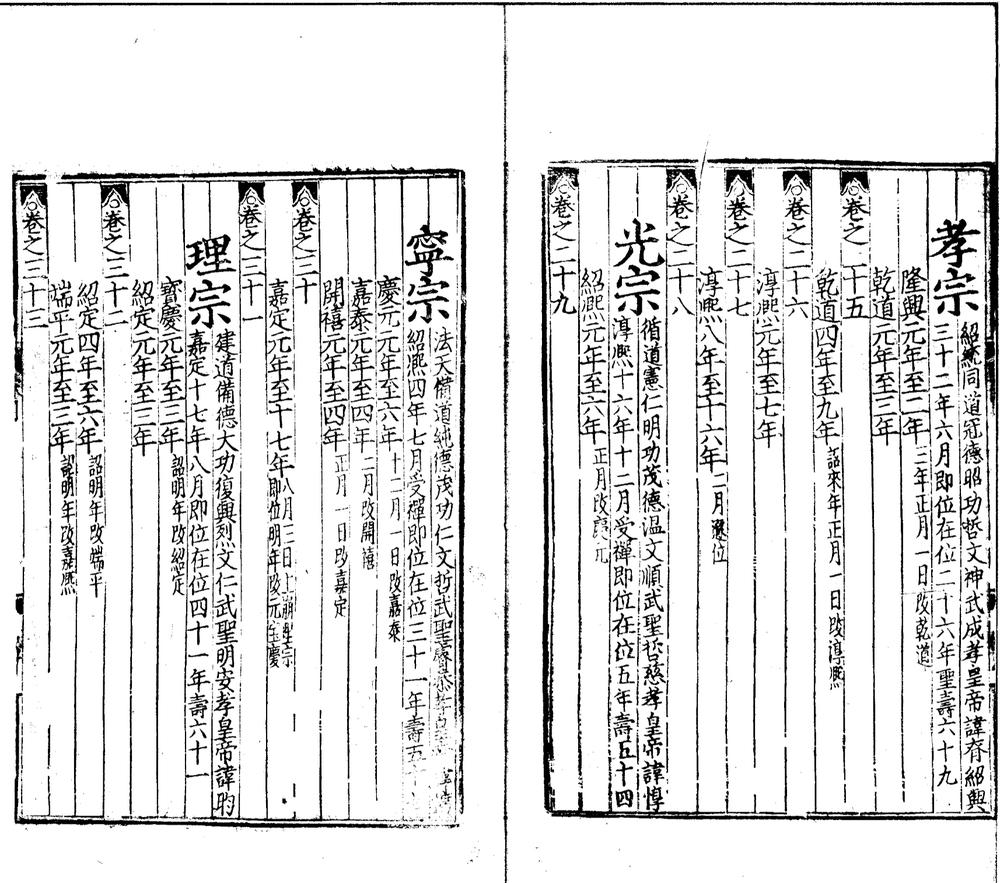 孝宗
紹統同道冠德昭功哲文神武成孝皇帝諱眘紹興
三十二年六月即位在位二十六年聖壽六十九
隆興元年至二年三年正月一日改乾道
乾道元年至三年
卷之二十五
乾道四年至九年詔來年正月一日改淳熙
卷之二十六
淳熙元年至七年
卷之二十七
淳熙八年至十六年二月遜位
卷之二十八
光宗
循道憲仁明功茂德温文順武聖哲慈孝皇帝諱惇
淳熙十六年十二月受禪即位在位五年壽五十四
紹熙元年至六年正月改慶元
卷之二十九
寧宗
法天備道純德茂功仁文哲武聖睿恭孝皇帝
紹熙四年七月受禪即位在位三十一年壽五十
慶元元年至六年十二月一日改嘉泰
嘉泰元年至四年二月改開禧
開禧元年至四年正月一日改嘉定
卷之三十
嘉定元年至十七年八月三日上崩聖宗即位明年改元宝慶
卷之三十一
理宗
建道備德大功復興烈文仁武聖明安孝皇帝諱昀
嘉定十七年八月即位在位四十一年壽六十一
寶慶元年至三年詔明年改紹定
紹定元年至三年
卷之三十二
紹定四年至六年詔明年改端平
端平元年至三年詔明年改嘉熙
卷之三十三